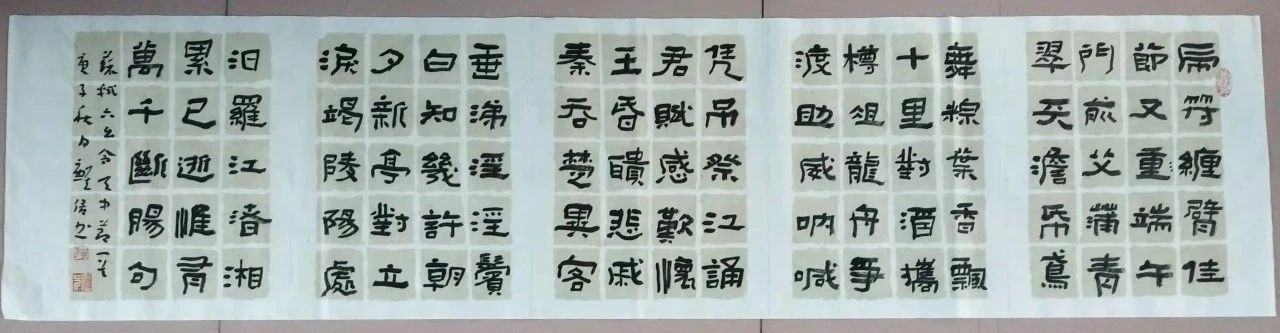 虎符纏臂佳
節又重端午
門前艾蒲青
翠天澹帋鳶
舞粽葉香飄
十里對酒攜
樽俎龍舟爭
渡助威吶喊
凭吊祭江誦
君賦感歎懷
王昏聵悲戚
秦吞楚異客
垂涕淫淫鬢
白知幾許朝
夕新亭對立
淚竭陵陽處
汨羅江渚湘
累已逝惟有
萬千斷腸句
蘇軾六幺令天中節一首
庚子秋月